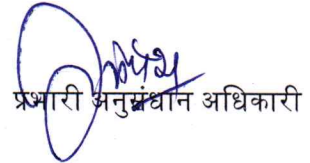 प्रभारी अनुसंधान अधिकारी